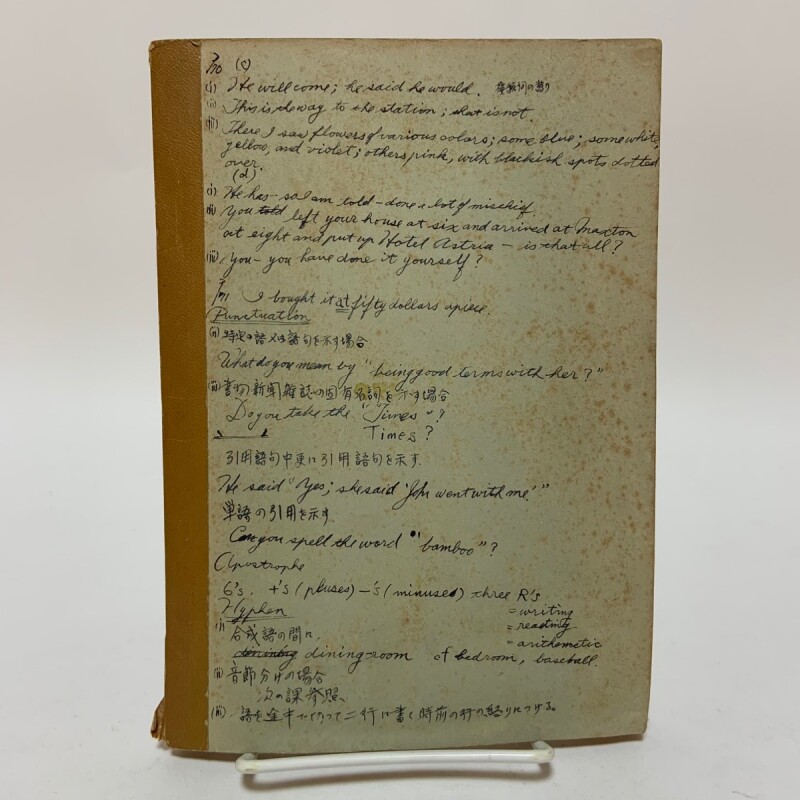 (c)
(i) He will come; he said he would.
(ii) This is the way to the station; that is not.
(iii) There I saw flowers of various colors; some blue; some white,
yellow, and violet; others pink, with blackish spots dotted
over.
(d)
(i) He has – so I am told – done a lot of mischief.
(ii) You told left your house at six and arrived at Maxton
at eight and put up Hotel Astria – is that all?
(iii) You – you have done it yourself?
I bought it at fifty dollars apiece.
Punctuation
(i) 特定の語又は語句を示す場合
What do you mean by "being good terms with her?"
(ii) 書物新聞雑誌の固有名詞を示す場合
Do you take the "Times"?
Times?
引用語句中更に引用語句を示す.
He said "Yes; she said 'John went with me.'"
単語の引用を示す.
Can you spell the word "bamboo"?
Apostrophe
6's. +'s (pluses) –'s (minuses) three R's
= writing
Hyphen
= reading
(i) 合成語の間に,
= arithemetic
dining-room cf bedroom, baseball.
(ii) 音節分けの場合
次の課参照、
(iii) 語を途中で切って二行に書く時前の行の終りにつける。